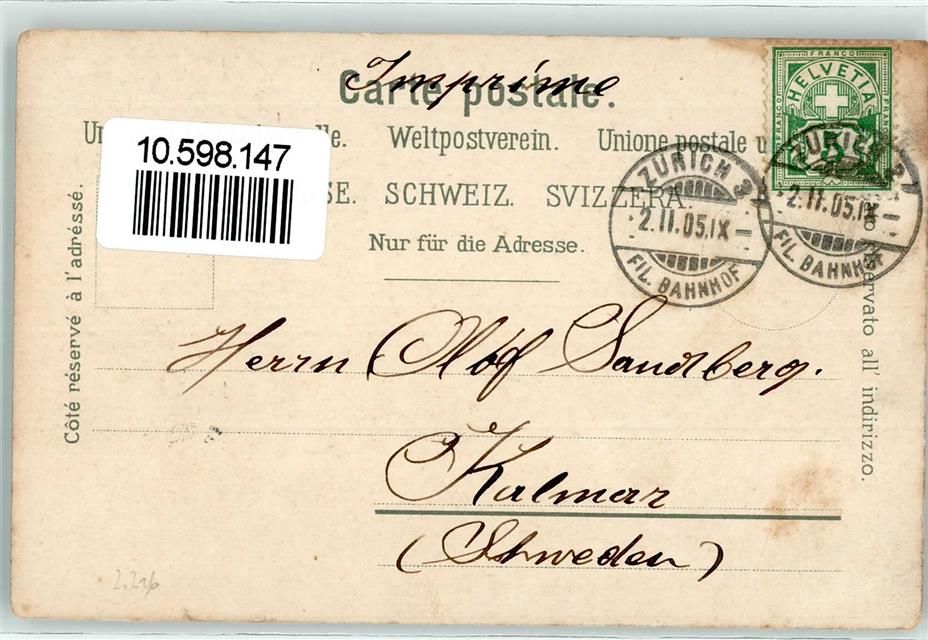 Imprimé
Carte postale.
Weltpostverein. Unione postale u
SCHWEIZ. SVIZZERA.
Nur für die Adresse.
10.598.147
FRANCO
HELVETIA
FRANCO
FRANCO
5
ZÜRICH
2.II.05.IX
FIL. BAHNHOF
ZÜRICH
2.II.05.IX
FIL. BAHNHOF
Côté réservé à l'adresse.
riservato all' indirizzo.
Herrn Olof Sandberg.
Kalmar
(Schweden)